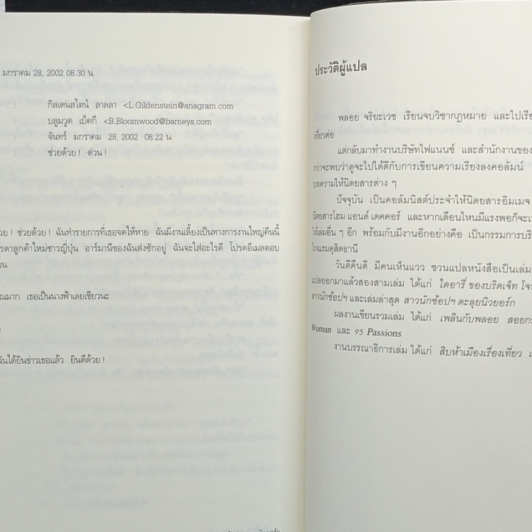 มกราคม 28, 2002 08.30 น.
กิลเดนสไตน์ ลาลลา <L.Gildenstein@anagram.com
บลูมวูด เบ็คกี้ <B.Bloomwood@barneys.com
จันทร์ มกราคม 28, 2002 08.22 น.
ช่วยด้วย! ด่วน!
! ช่วยด้วย! ฉันทำรายการที่เธอจดให้หาย ฉันมีงานเลี้ยงเป็นทางการงานใหญ่คืนนี้
ลูกค้าใหม่ชาวญี่ปุ่น อาร์มานีของฉันส่งซักอยู่ ฉันจะใส่อะไรดี โปรดอีเมลตอบ
เธอเป็นนางฟ้าเลยเชียวนะ
ได้ยินข่าวเธอแล้ว ยินดีด้วย!
ประวัติผู้แปล
พลอย จริยะเวช เรียนจบวิชากฎหมาย และไปเรีย
แต่กลับมาทำงานบริษัทไฟแนนซ์ และสำนักงานของ
ว่าจะพบว่าดูจะไปได้ดีกับการเขียนความเรียงลงคอลัมน์
บทความให้นิตยสารต่าง ๆ
ปัจจุบัน เป็นคอลัมนิสต์ประจำให้นิตยสารอิมเมจ
โฮม แอนด์ เดคคอร์ และหากเดือนไหนมีแรงพอก็จะเ
เล่มอื่น ๆ อีก พร้อมกับมีงานอีกอย่างคือ เป็นกรรมการบริ
โรงแรมดุสิตธานี
วันดีคืนดี มีคนเห็นแวว ชวนแปลหนังสือเป็นเล่ม
แปลออกมาแล้วสองสามเล่ม ได้แก่ ไดอารี่ ของบริดเจ็ท โจ
สาวนักช้อปฯ และเล่มล่าสุด สาวนักช้อปฯ ตะลุยนิวยอร์ก
ผลงานเขียนรวมเล่ม ได้แก่ เพลินกับพลอย สอยก
Woman และ 95 Passions
งานบรรณาธิการเล่ม ได้แก่ สิบห้าเมืองเรื่องเที่ยว เ